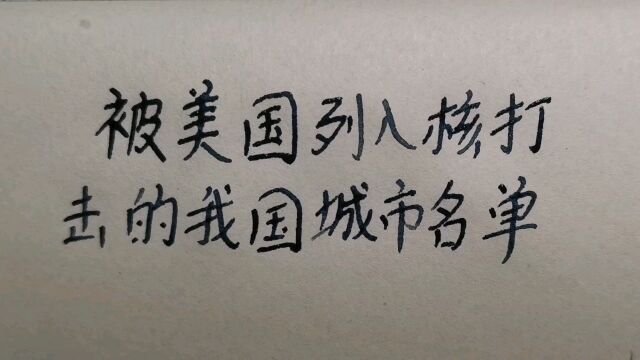 被美国列入核打
击的我国城市名单